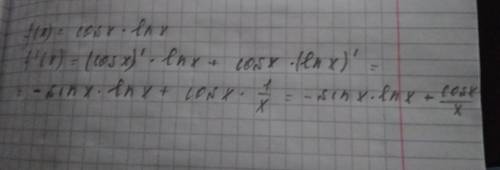 f(x) = cosx · lnx
f'(x) = (cosx)' · lnx + cosx · (lnx)' =
= -sinx · lnx + cosx · 1/x = -sinx · lnx + cosx/x